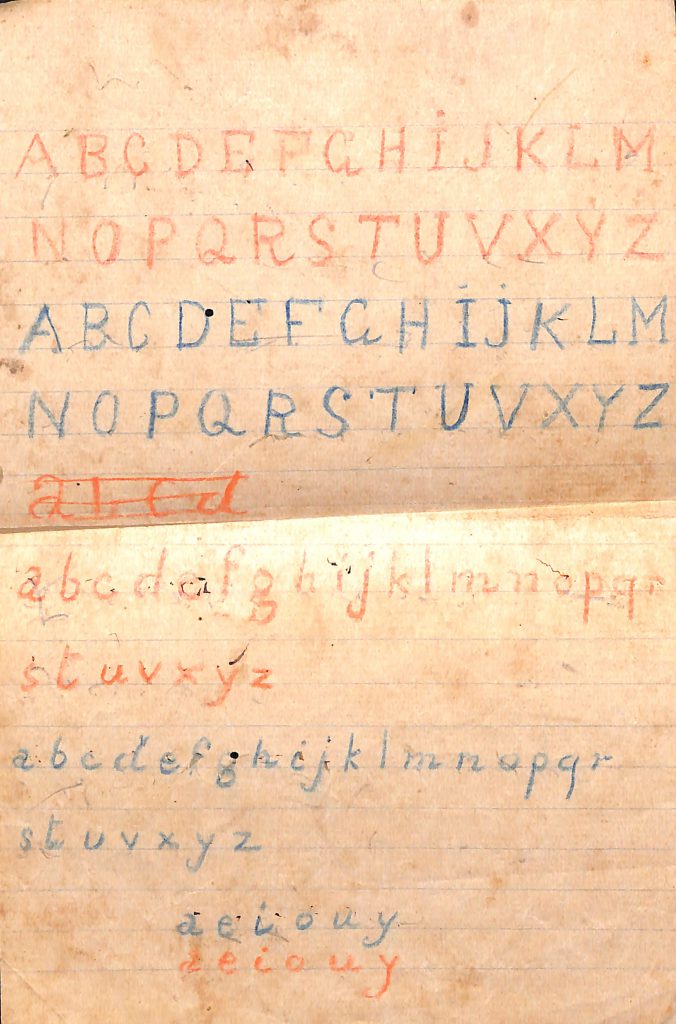 A B C D E F G H İ J K L M
N O P Q R S T U V X Y Z
A B C D E F G H İ J K L M
N O P Q R S T U V X Y Z
a b c d
a b c d e f g h i j k l m n o p q r
s t u v x y z
a b c d e f g h i j k l m n o p q r
s t u v x y z
a e i o u y
a e i o u y